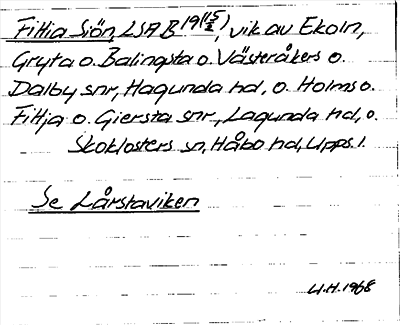 Fittia Siön, LSA B 19 (15/2), vik av Ekoln,
Gryta o. Balingsta o. Västeråkers o.
Dalby snr, Hagunda hd, o. Holms o.
Fittja o. Giersta snr, Lagunda hd, o.
Skoklosters sn, Håbo hd, Upps. l.
Se Lårstaviken
U.H. 1968